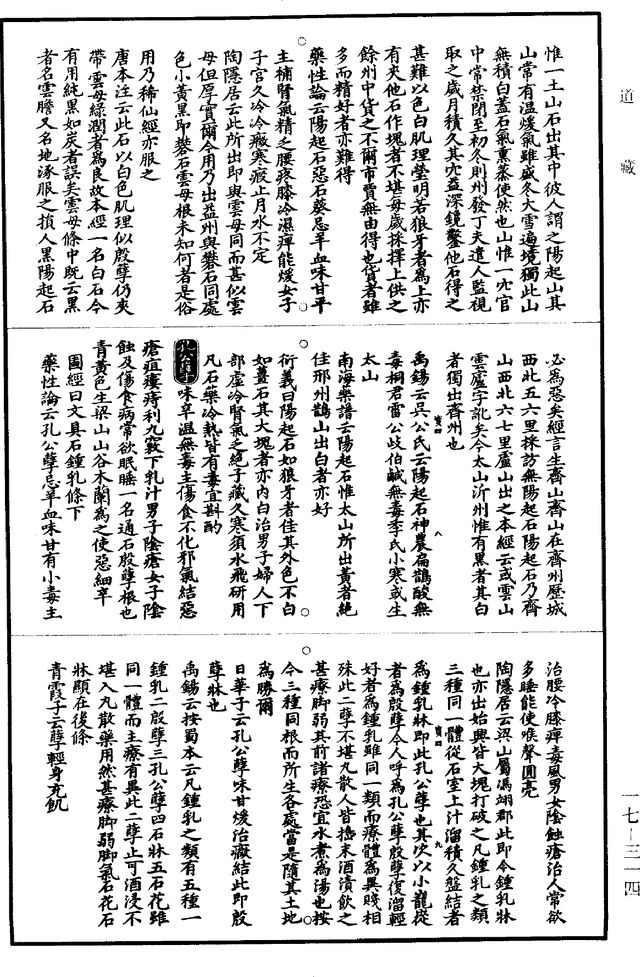 道藏
惟一土山石出其中彼人謂之陽起山其
山常有温煖氣雖盛冬大雪遍境獨此山
無積白蓋石氣熏蒸使然也山惟一穴官
中常禁閉至初冬則州發丁夫遣人監視
取之歲月積久其穴益深鐫鑿他石得之
甚難以色白肌理瑩明若狼牙者為上亦
有夾他石作塊者不堪每歲採擇上供之
餘州中貨之不爾市賈無由得也貨者雖
多而精好者亦難得
藥性論云陽起石惡石葵忌羊血味甘平
主補腎氣精乏腰疼膝冷濕痺能煖女子
子宮久冷冷癥寒瘕止月水不定
陶隱居云此所出即與雲母同而甚似雲
母但厚實爾今用乃出益州與礬石同處
色小黃黑即礬石雲母根未知何者是俗
用乃稀仙經亦服之
唐本注云此石以白色肌理似殷孽仍夾
帶雲母綠潤者為良故本經一名白石今
有用純黑如炭者誤矣雲母條中既云黑
者名雲膽又名地涿服之損人黑陽起石
必為惡矣經言生齊山齊山在齊州歷城
西北五六里採訪無陽起石陽起石乃齊
山西北六七里盧山出之本經云或雲山
雲盧字訛矣今太山沂州惟有黑者其白
者獨出齊州也
禹錫云吳公氏云陽起石神農扁鵲酸無
毒桐君雷公歧伯鹹無毒李氏小寒或生
太山
南海藥譜云陽起石惟太山所出黃者絕
佳邢州鵲山出白者亦好
衍義曰陽起石如狼牙者佳其外色不白
如薑石其大塊者亦內白治男子婦人下
部虛冷腎氣乏絕子藏久寒須水飛研用
凡石藥冷熱皆有毒宜斟酌
孔公孽味辛温無毒主傷食不化邪氣結惡
瘡疽瘻痔利九竅下乳汁男子陰瘡女子陰
蝕及傷食病常欲眠睡一名通石殷孽根也
青黃色生梁山山谷木蘭為之使惡細辛
圖經曰文具石鍾乳條下
藥性論云孔公孽忌羊血味甘有小毒主
治腰冷膝痺毒風男女陰蝕瘡治人常欲
多睡能使喉聲圓亮
陶隱居云梁山屬馮翊郡此即今鍾乳牀
也亦出始興皆大塊打破之凡鍾乳之類
三種同一體從石室上汁溜積久盤結者
為鍾乳牀即此孔公孽也其次以小巃嵸
者為殷孽今人呼為孔公孽殷孽復溜輕
好者為鍾乳雖同一類而療體為異賤相
殊此二孽不堪丸散人皆搗末酒漬飲之
甚療脚弱其前諸療恐宜水煮為湯也按
今三種同根而所生各處當是隨其土地
為勝爾
日華子云孔公孽味甘煖治癥結此即殷
孽牀也
禹錫云按蜀本云凡鍾乳之類有五種一
鍾乳二殷孽三孔公孽四石牀五石花雖
同一體而主療有異此二孽止可酒浸不
堪入丸散藥用然甚療脚弱脚氣石花石
牀顯在後條
青霞子云孽輕身充飢
一七—三一四